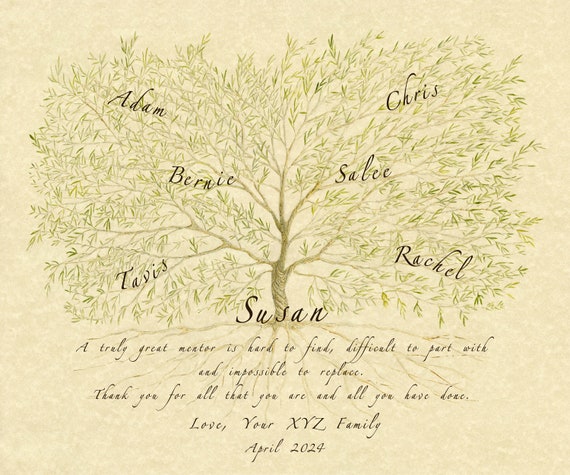 Adam
Chris
Bernie
Salee
Tavis
Rachel
Susan
A truly great mentor is hard to find, difficult to part with
and impossible to replace.
Thank you for all that you are and all you have done.
Love, Your XYZ Family
April 2024